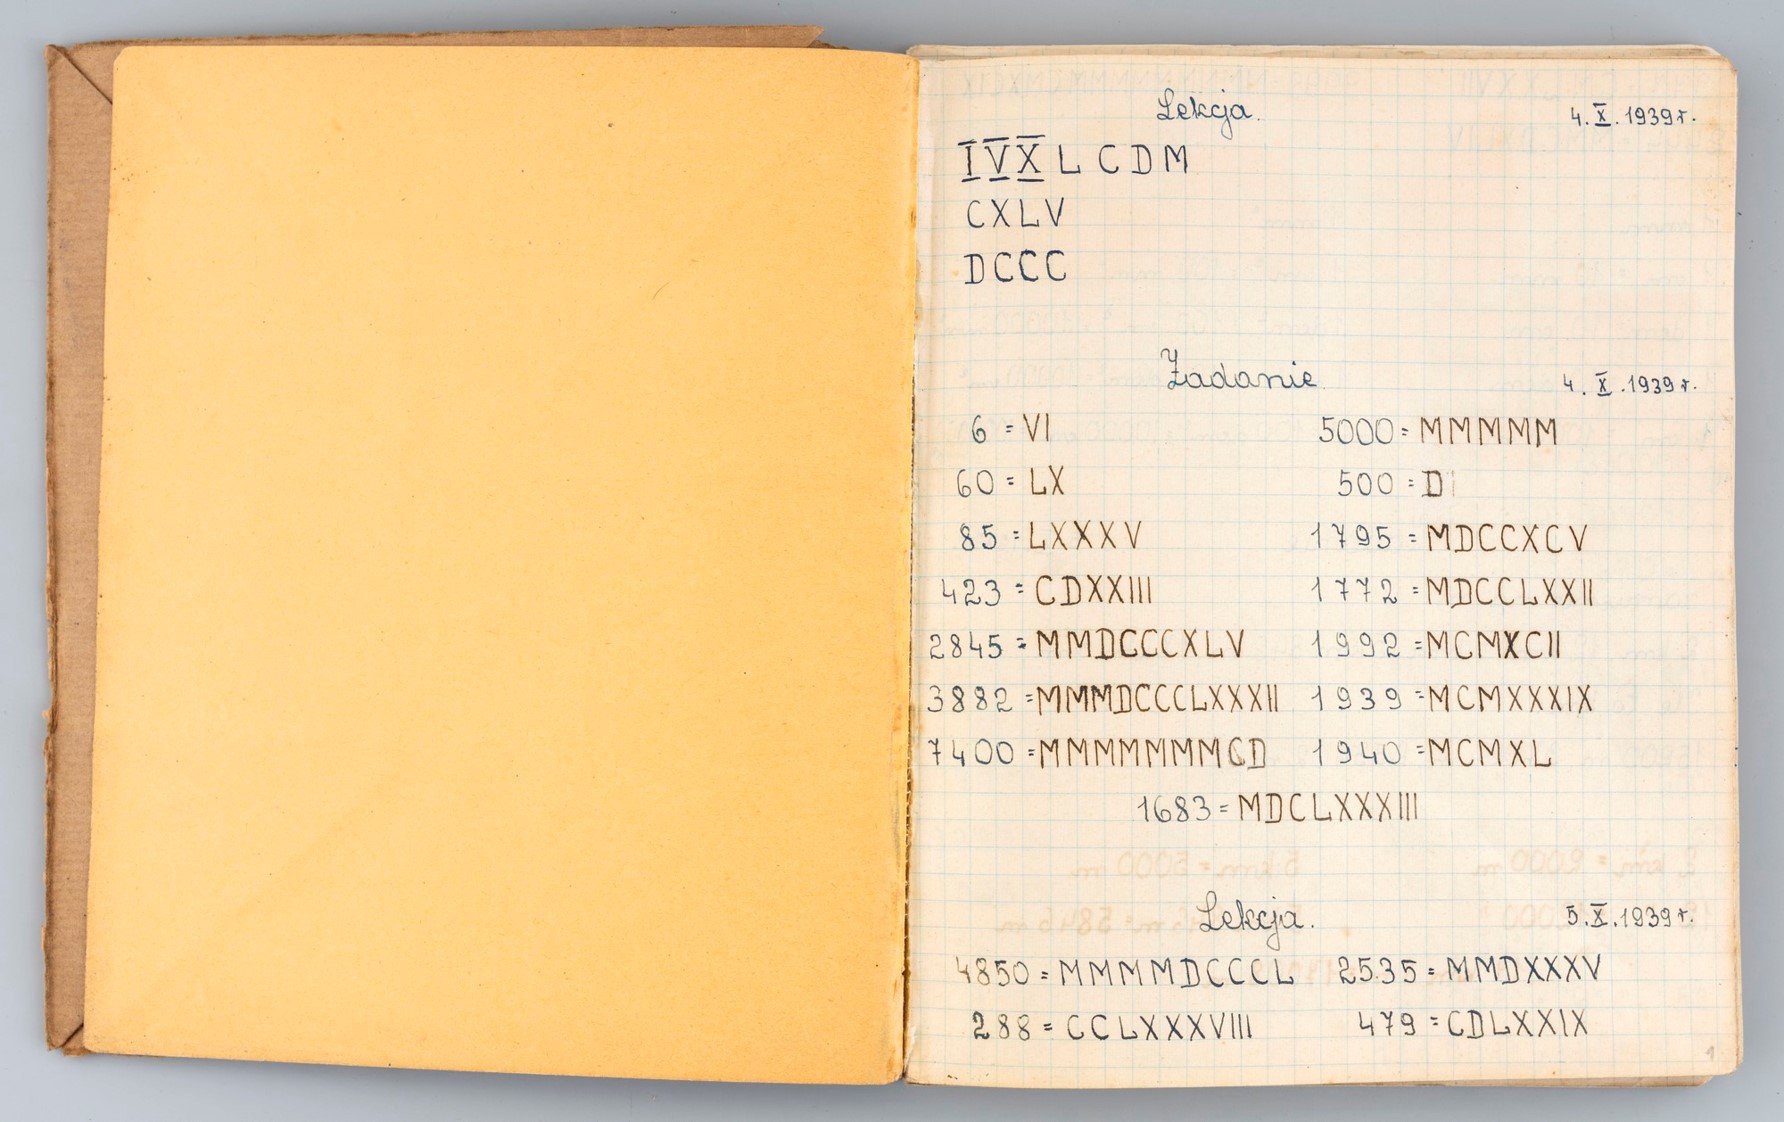 Lekcja. 4.X.1939r.
I V X L C D M
CXLV
DCCC
Zadanie. 4.X.1939r.
6 = VI 5000 = MMMMM
60 = LX 500 = D
85 = LXXXV 1795 = MDCCXCV
423 = CDXXIII 1772 = MDCCLXXII
2845 = MMDCCCXLV 1992 = MCMXCII
3882 = MMMDCCCLXXXII 1939 = MCMXXXIX
7400 = MMMMMMMCD 1940 = MCMXL
1683 = MDCLXXXIII
Lekcja. 5.X.1939r.
4850 = MMMMDCCCL 2535 = MMDXXXV
288 = CCLXXXVIII 479 = CDLXXIX